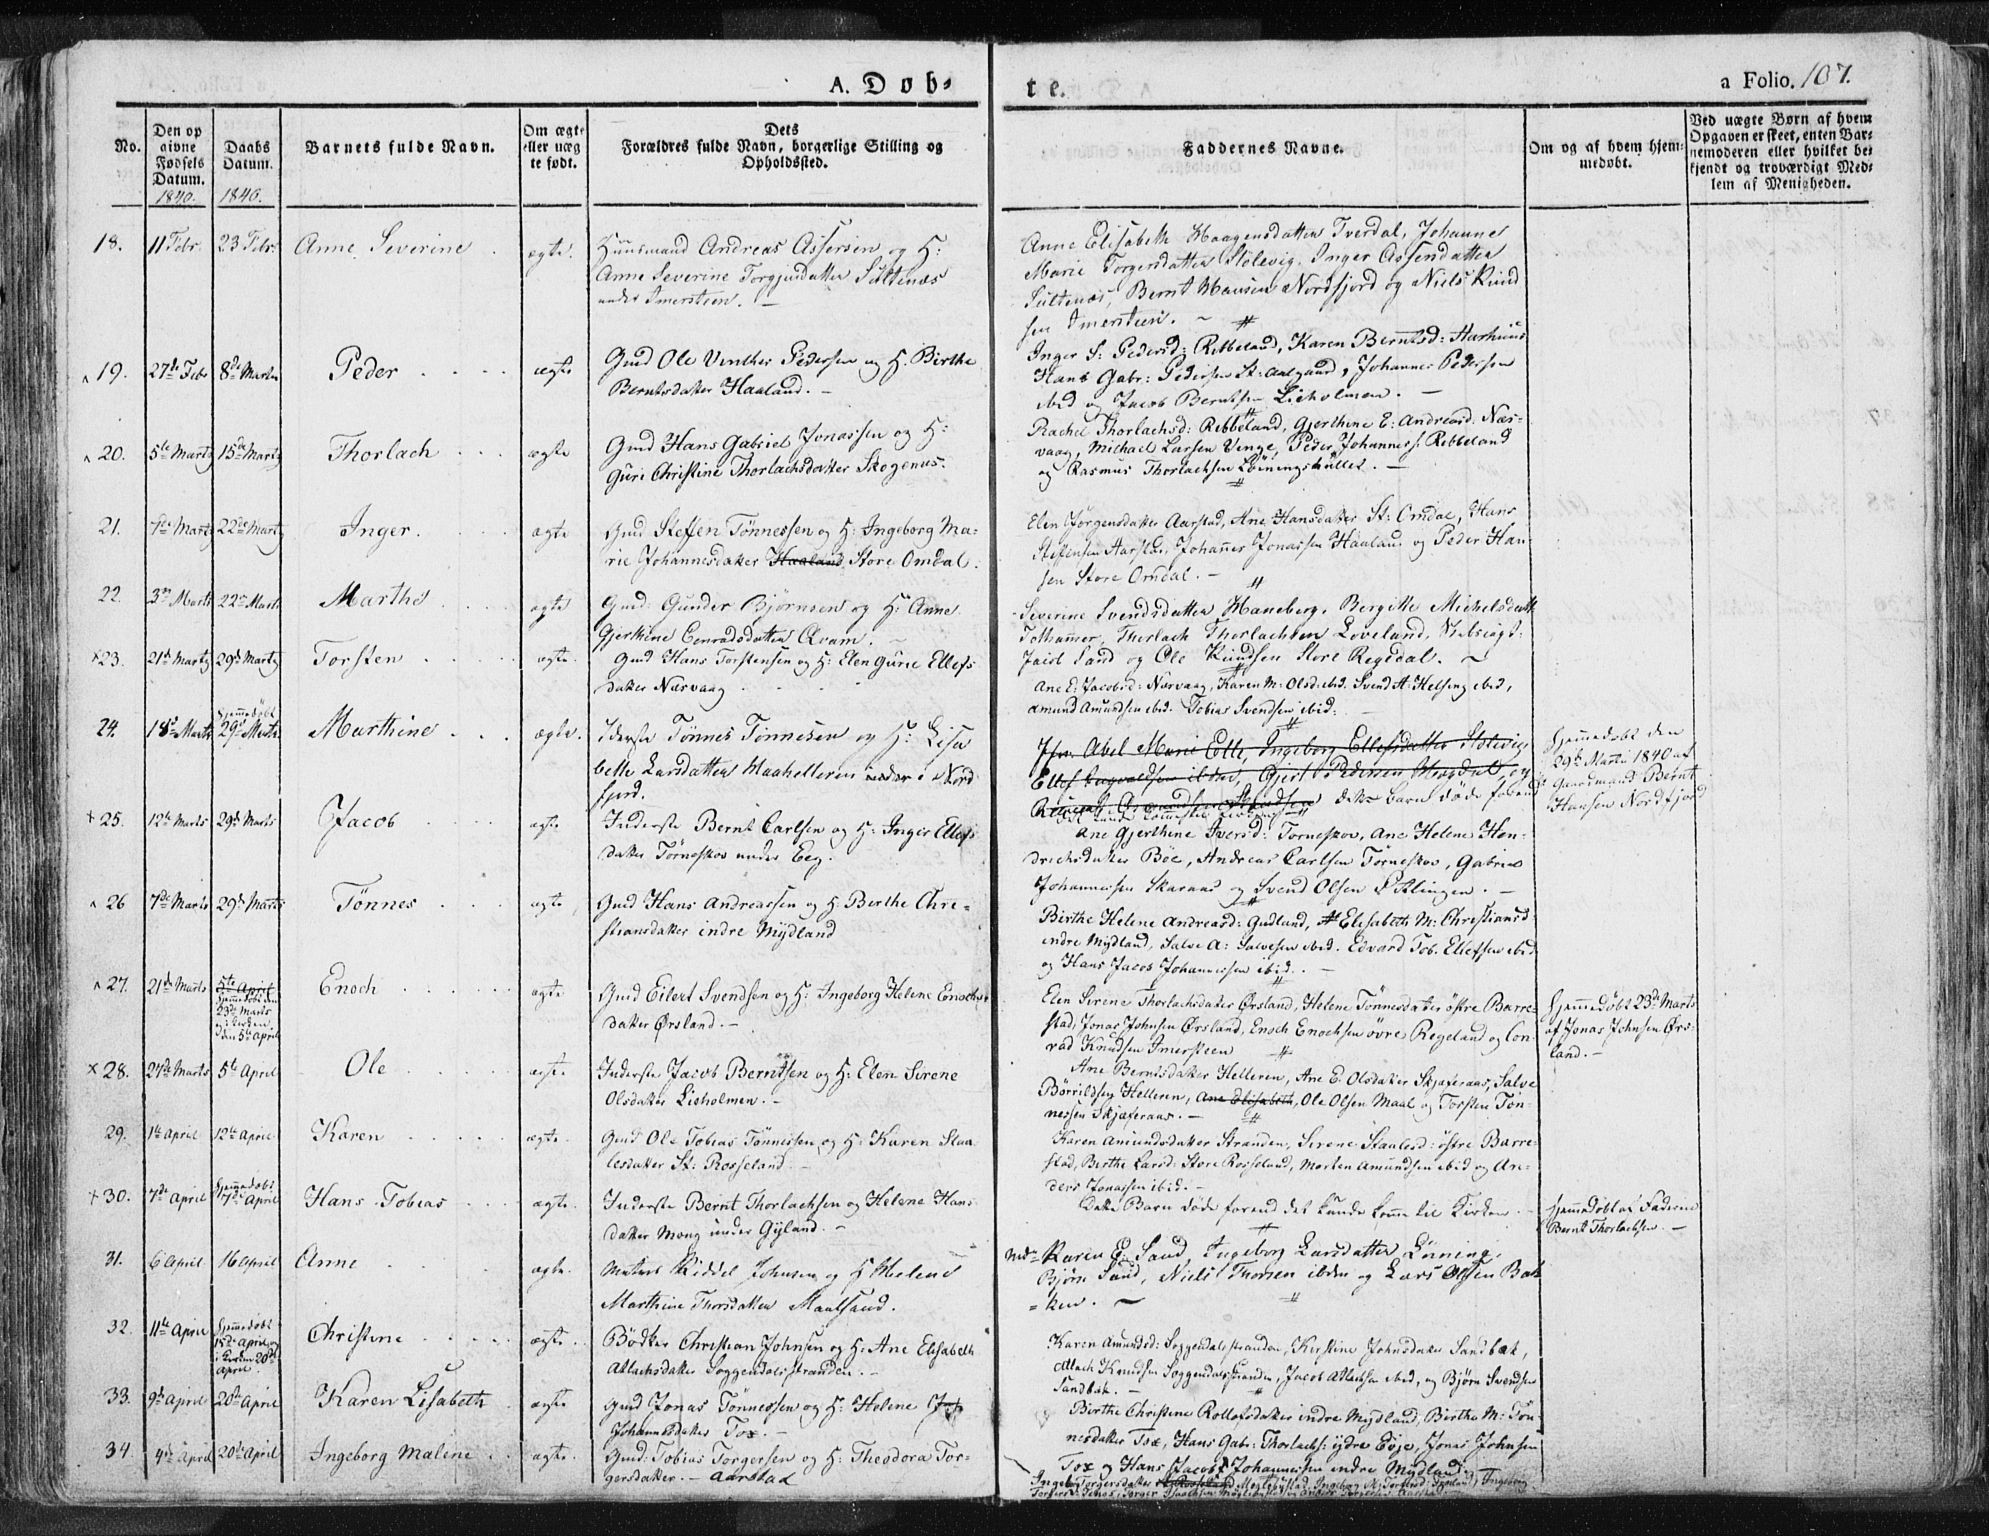 A. Døb-
te.
a Folio. 107.
No.
Den op
givne
Fødsels
Datum.
1840.
Daabs
Datum.
1840.
Barnets fulde Navn.
Om ægte
eller uæg
te født.
Dets
Forældres fulde Navn, borgerlige Stilling og
Opholdssted.
Faddernes Navne.
Om og af hvem hjem-
medøbt.
Ved uægte Børn af hvem
Opgaven er skeet, enten Bar-
nemoderen eller hvilket be-
kjendt og troværdigt Med-
lem af Menigheden.
18. 11 Febr. 23 Febr. Anne Severine ægte. Huusmand Andreas Assersen og H:
Anne Severine Torgjusdatter Sültenæs
under Imersteen.
Anne Elisabeth Haagensdatter Tverdal, Johanne
Marie Torgersdatter Stølevig, Inger Assersdatter
Sültenæs, Bernt Hansen Nordfjord og Niels Knud
sen Imersteen.
19. 27de Febr 8de Martz Peder ægte Gmd Ole Vinther Pedersen og H. Birthe
Berntsdatter Haaland.
Inger S: Pedersd: Rebbeland, Karen Berntsd: Aarhuus
Hans Gabr: Pedersen St: Aalgaard, Johannes Pedersen
ibid og Jacob Berntsen Lieholmen.
20. 5te Martz 15de Martz Thorlach ægte Gmd Hans Gabriel Jonassen og H:
Guri Christine Thorlachsdatter Skogenæs.
Rachel Thorlachsd: Rebbeland, Gjerthine E: Andreasd: Nær-
vaag, Michael Larsen Venge, Peder Johannes S. Rebbeland
og Rasmus Thorlachsen
21. 7de Martz 22de Martz Inger. ægte Gmd Steffen Tønnessen og H: Ingeborg Ma-
rie Johannesdatter Haaland Store Omdal.
Elen Jørgensdatter Aarstad, Ane Hansdatter St: Omdal, Hans
Steffensen Aarstad, Johannes Jonassen Haaland og Peder Han-
sen Store Omdal.
22. 3die Marts 22de Marts Marthe ægte Gmd: Gunder Bjørnsen og H: Anne
Gjerthine Conradsdatter Qvam.
Severine Svendsdatter Haneberg, Bergitte Michelsdatter
Tothammer, Thorlach Thorlachsen Loveland,
Sand og Ole Knudsen Store Regedal.
23. 21de Martz 29de Martz Torsten ægte. Gmd Hans Torstensen og H: Elen Gurie Ellefs
datter Nærvaag
Ane E: Jacobsd: Nærvaag, Karen M: Olsd: ibid. Svend A: Helsing ibid,
Amund Amundsen ibid. Tobias Svendsen ibid.
24. 18de Marts Hjemmedøbt
29de Marts Marthine ægte. Iderste Tønnes Tønnesen og H: Lisa
beth Larsdatter Maahelleren under i Nord
fjord.
Jfr. Abel Marie Eelle, Ingeborg Ellefsdatter Stølevig
Ellef Ingvaldsen ibidem, Gjert Pedersen og
dette Barn døde forend
Hjemmedøbt den
29de Martii 1840 af
Gaardmand Bernt
Hansen Nordfjord
25. 12te Marts 29de Marts Jacob ægte Inderste Bernt Carlsen og H: Inger Ellefs
datter Tørneskov under Eeg.
Ane Gjerthine Iversd: Torneskov, Ane Helene Hen-
drichsdatter Bøe, Andreas Carlsen Tørneskov, Gabriel
Johannessen Skaraas og Svend Olsen Ettlingen.
26 7de Marts 29de Marts Tønnes ægte Gmd Hans Andreassen og H Berthe Chri-
stiansdatter indre Mydland
Birthe Helene Andreasd: Gudland, Elisabeth M: Christiansd
indre Mydland, Salve A: Salvesen ibid. Edvard Tob. Ellefsen ibid
og Hans Jacob Johannessen ibid.
27. 21de Marts 5te April
Hjemmedøbt den
23de Marts
i Kirken
den 5te April Enoch ægte Gmd Eilert Svendsen og H: Ingeborg Helene Enochs-
datter Ørsland.
Elen Serene Thorlachsdatter Ørsland, Helene Tønnesdatter østre Barre-
stad, Jonas Johnsen Ørsland, Enoch Enochsen øvre Regeland og Con-
rad Knudsen Imersteen
Hjemmedøbt 23de Marts
af Jonas Johnsen Ørs-
land.
28. 27de Marts 5te April Ole ægte Inderste Jacob Berntsen og H: Elen Serene
Olsdatter Lieholmen.
Ane Berntsdatter Helleren, Ane E. Olsdatter Skjæferaas, Salve
Børrildsen Helleren, Ane Elisabeth, Ole Olsen Maal og Torsten Tøn-
nessen Skjæferaas.
29. 1te April 12te April Karen ægte. Gmd Ole Tobias Tønnesen og H: Karen Staa
lesdatter St: Rosseland
Karen Amundsdatter Stranden, Serene Staalesd: østre Barre-
stad, Berthe Larsd: Store Rosseland, Morten Amundsen ibid og An-
ders Jonassen ibid.
30. 7de April Hjemmedøbt
7de April Hans Tobias ægte. Inderste Bernt Thorlachsen og Helene Hans
datter Mong under Gyland.
Dette Barn døde forend det kunde komme til Kirken.
Hjemmedøbt af Faderen
Bernt Thorlachsen.
31. 6 April 16 April Anne ægte. Kiddel Johnsen og H Helene
Marthine Thorsdatter Maalsand.
Karen E: Sand, Ingeborg Larsdatter Løining,
Bjørn Sand, Niels Thorsen ibiden og Lars Olsen Bak
ken.
32. 11te April Hjemmedøbt
15de April og
i Kirken 20de
April. Christine ægte. Bødker Christian Johnsen og H: Ane Elisabeth
Atlachsdatter Soggendalsstranden.
Karen Amundsd: Soggendalsstranden, Kirstine Johnsdatter Sandbæk,
Atlach Knudsen Soggendalsstranden, Jacob Atlachsen ibid, og Bjørn Svendsen
Sandbæk.
33. 9de April 20de April Karen Lisabeth ægte Gmd Jonas Tønnessen og H: Helene
Johannesdatter Tox.
Birthe Christine Rollofsdatter indre Mydland, Birthe M: Tøn-
nesdatter Tox, Hans Gabr: Thorlachs: ydre Eeje, Jonas Johnsen
Tox og Hans Jacob Johannessen indre Mydland.
34. 4de April 20de April Ingeborg Malene ægte. Gmd: Tobias Torgersen og H: Theodora Tor-
gersdatter. Aarstad
Ingeborg Torgersdatter